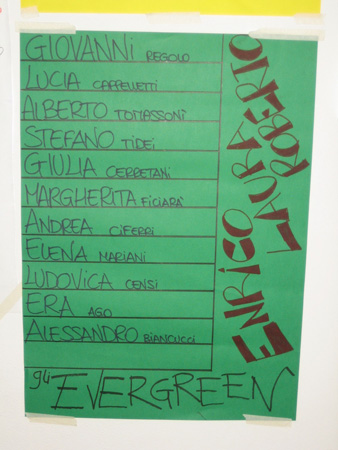 GIOVANNI REGOLO
LUCIA CAPPELLETTI
ALBERTO TOMASSONI
STEFANO TIDEI
GIULIA CERRETANI
MARGHERITA FICIARÀ
ANDREA CIFERRI
ELENA MARIANI
LUDOVICA CENSI
ERA AGO
ALESSANDRO BIANCUCCI
gli EVERGREEN
ENRICO
LAURA
ROBERTO